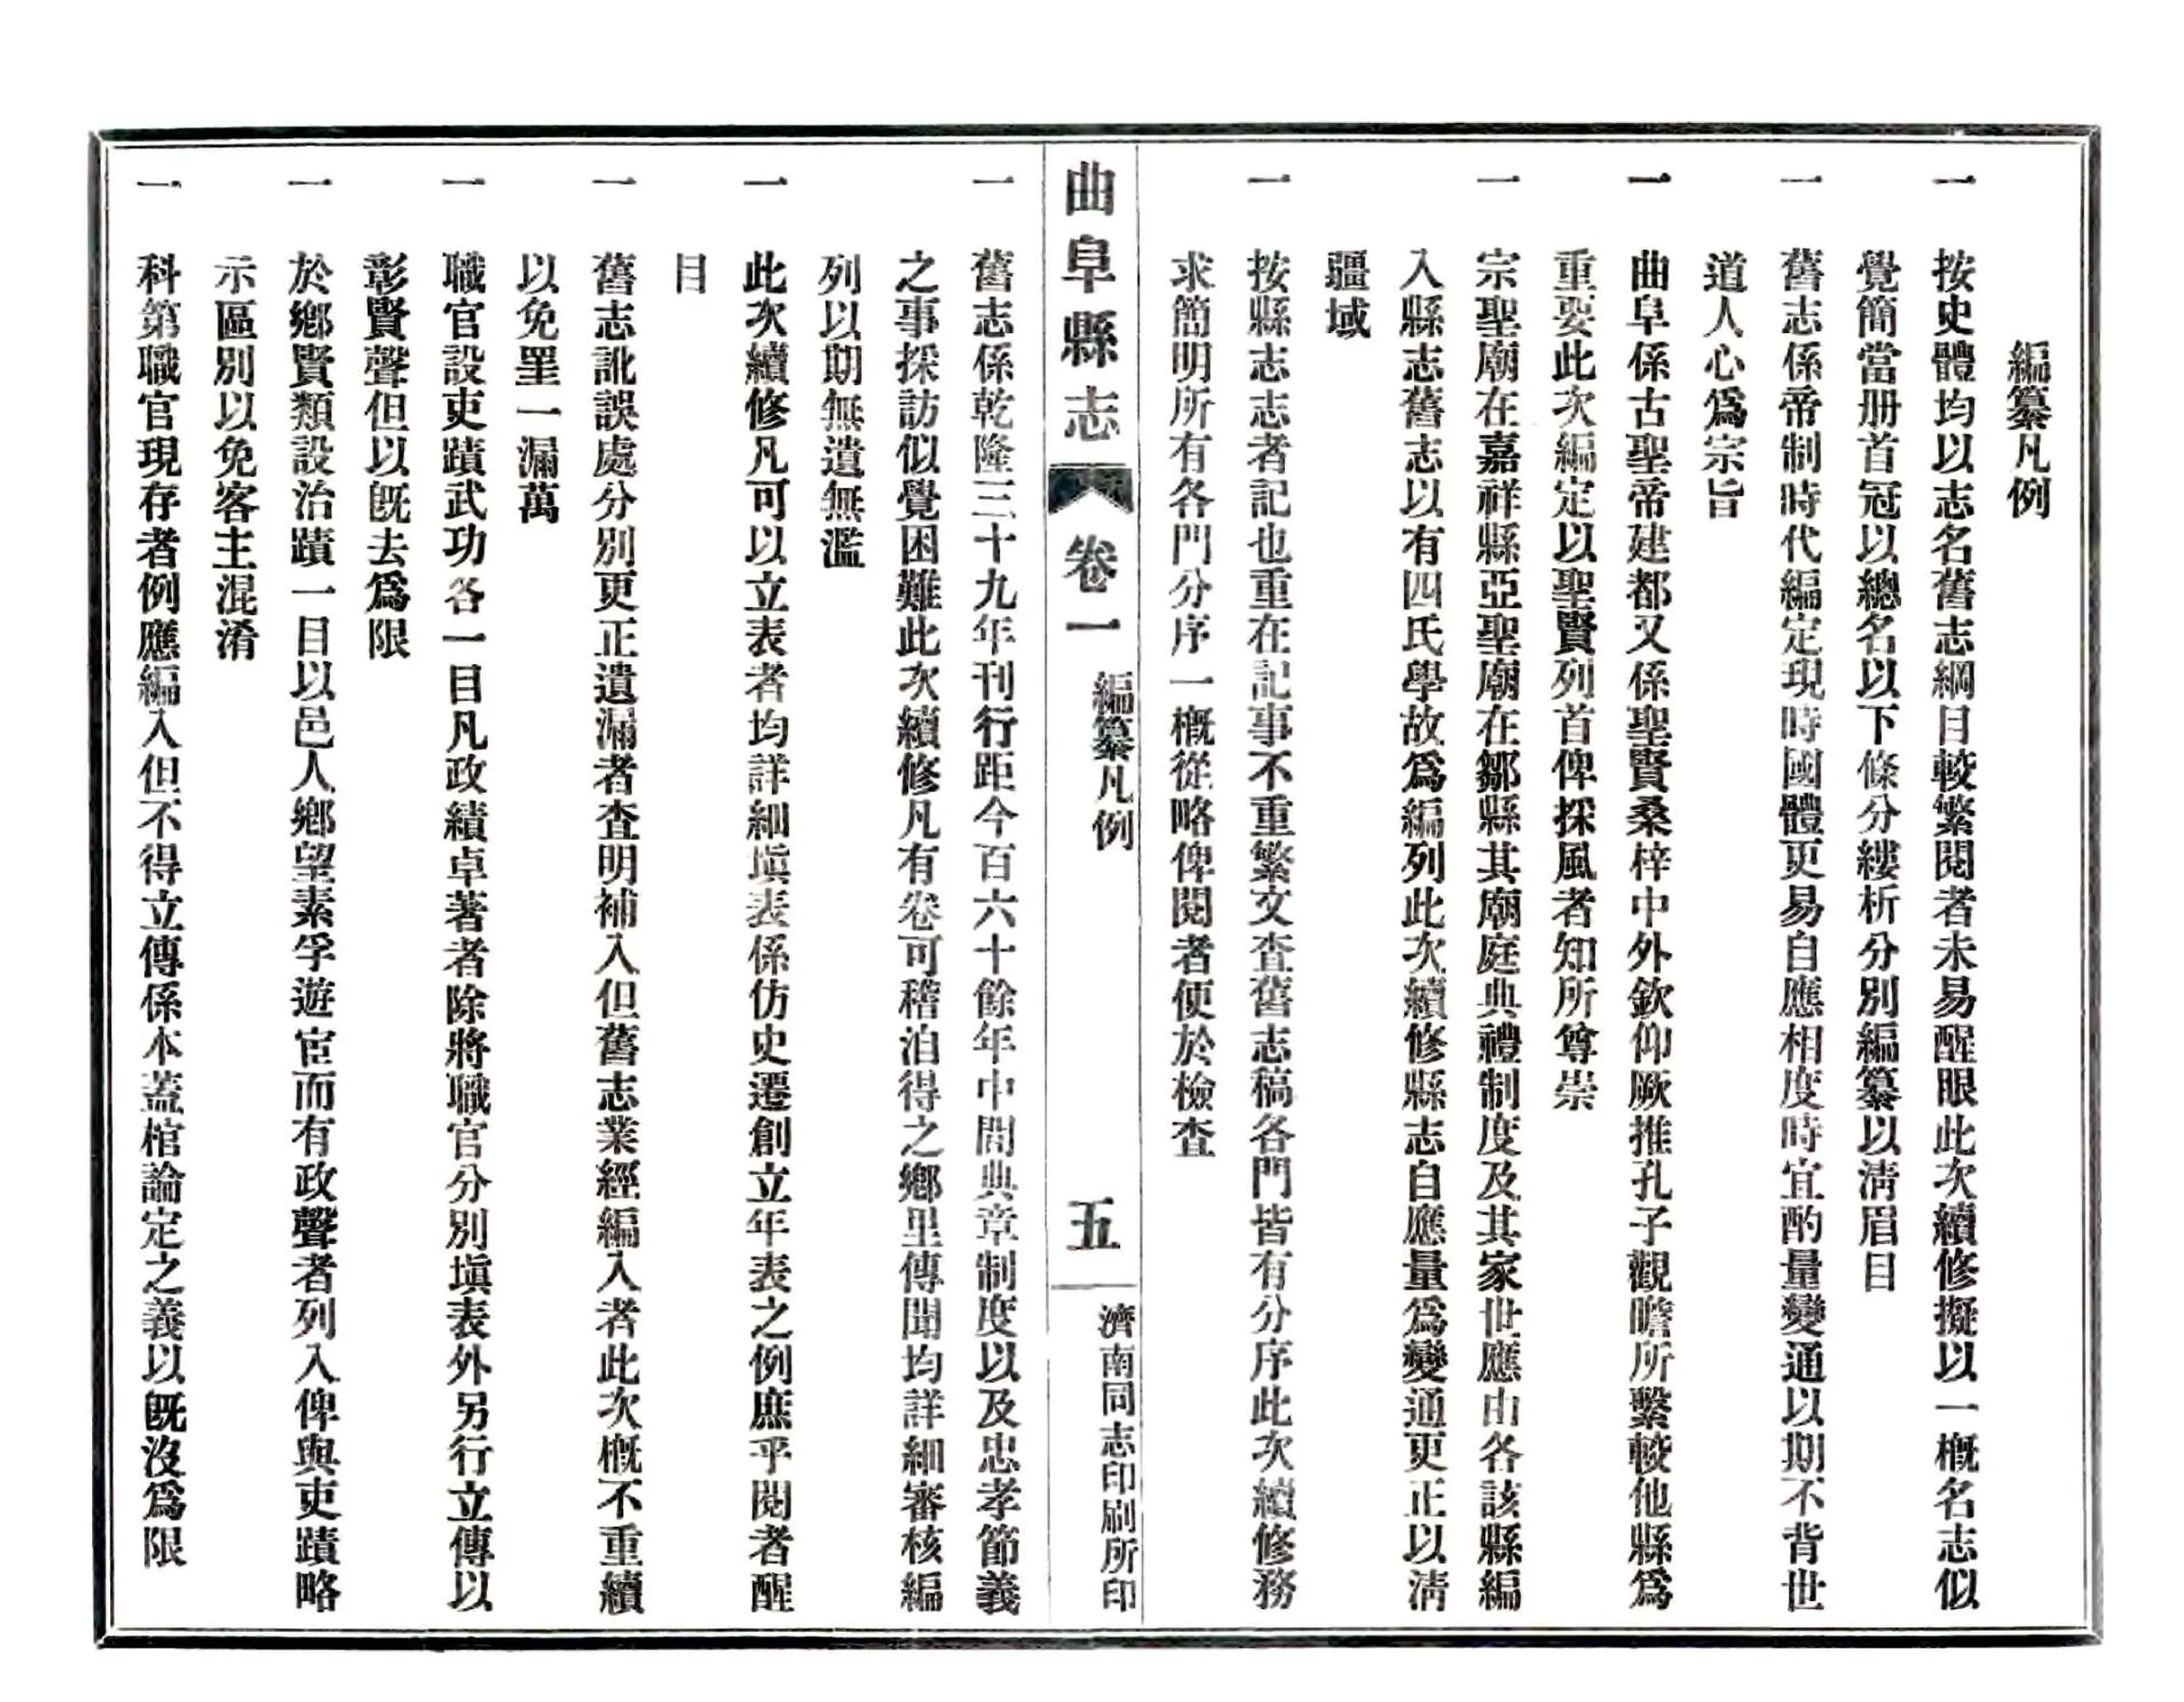 編纂凡例
一 按史體均以志名舊志綱目較繁閱者未易醒眼此次續修擬以一概名志似
覺簡當册首冠以總名以下條分縷析分別編纂以淸眉目
一 舊志係帝制時代編定現時國體更易自應相度時宜酌量變通以期不背世
道人心爲宗旨
一 曲阜係古聖帝建都又係聖賢桑梓中外欽仰厥推孔子觀瞻所繫較他縣爲
重要此次編定以聖賢列首俾採風者知所尊崇
一 宗聖廟在嘉祥縣亞聖廟在鄒縣其廟庭典禮制度及其家世應由各該縣編
入縣志舊志以有四氏學故爲編列此次續修縣志自應量爲變通更正以淸
疆域
一 按縣志志者記也重在記事不重繁文查舊志稿各門皆有分序此次續修務
求簡明所有各門分序一概從略俾閱者便於檢查
曲阜縣志 卷一 編纂凡例 五 濟南同志印刷所印
一 舊志係乾隆三十九年刊行距今百六十餘年中間典章制度以及忠孝節義
之事採訪似覺困難此次續修凡有卷可稽洎得之鄉里傳聞均詳細審核編
列以期無遺無濫
一 此次續修凡可以立表者均詳細塡表係仿史遷創立年表之例庶乎閱者醒
目
一 舊志訛誤處分別更正遺漏者查明補入但舊志業經編入者此次概不重續
以免罣一漏萬
一 職官設吏蹟武功各一目凡政績卓著者除將職官分別塡表外另行立傳以
彰賢聲但以旣去爲限
一 於鄉賢類設治蹟一目以邑人鄉望素孚遊宦而有政聲者列入俾與吏蹟略
示區別以免客主混淆
一 科第職官現存者例應編入但不得立傳係本蓋棺論定之義以旣沒爲限